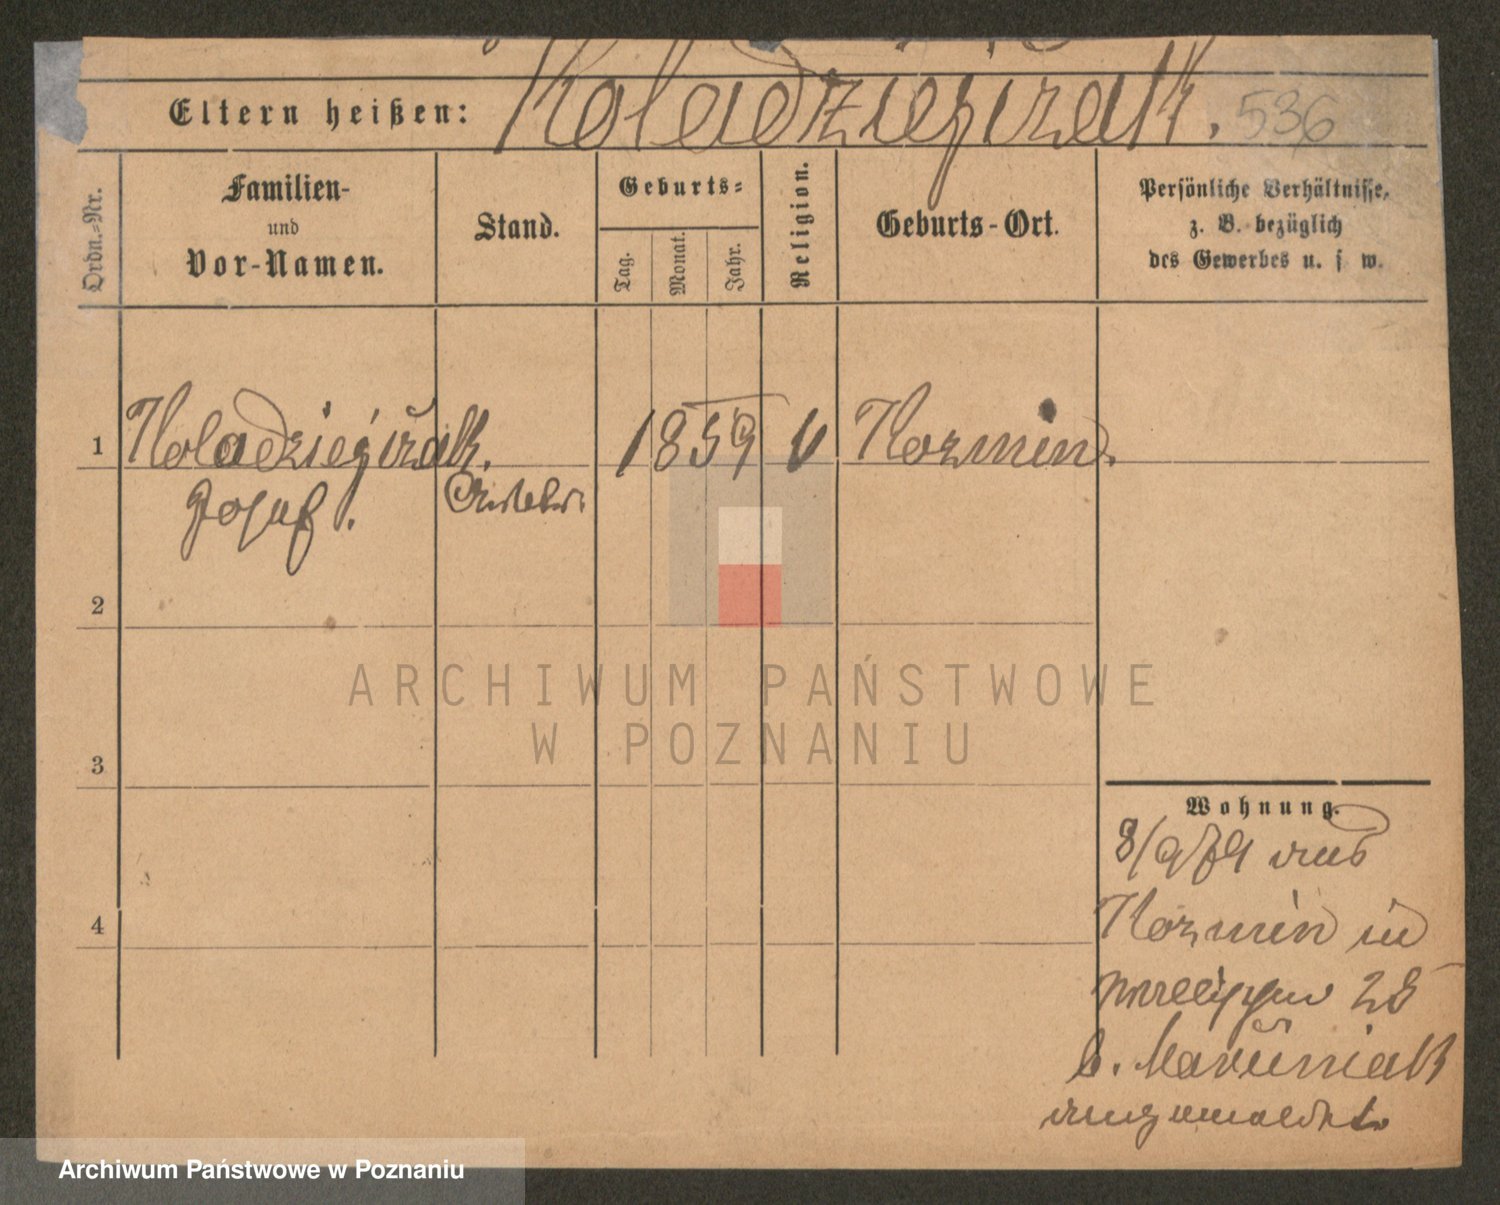 Eltern heißen: Koladziejczak. 536
Ordn.-Nr.
Familien-
und
Vor-Namen.
Stand.
Geburts-
Tag.
Monat.
Jahr.
Religion.
Geburts-Ort.
Persönliche Verhältnisse,
z. B. bezüglich
des Gewerbes u. s w.
1 Koladziejczak. 1859 Kozmin.
Josef.
2
3
4
Wohnung.
8/9 79 aus
Kozmin in
28
b.
angemeldet.
ARCHIWUM PAŃSTWOWE
W POZNANIU
Archiwum Państwowe w Poznaniu